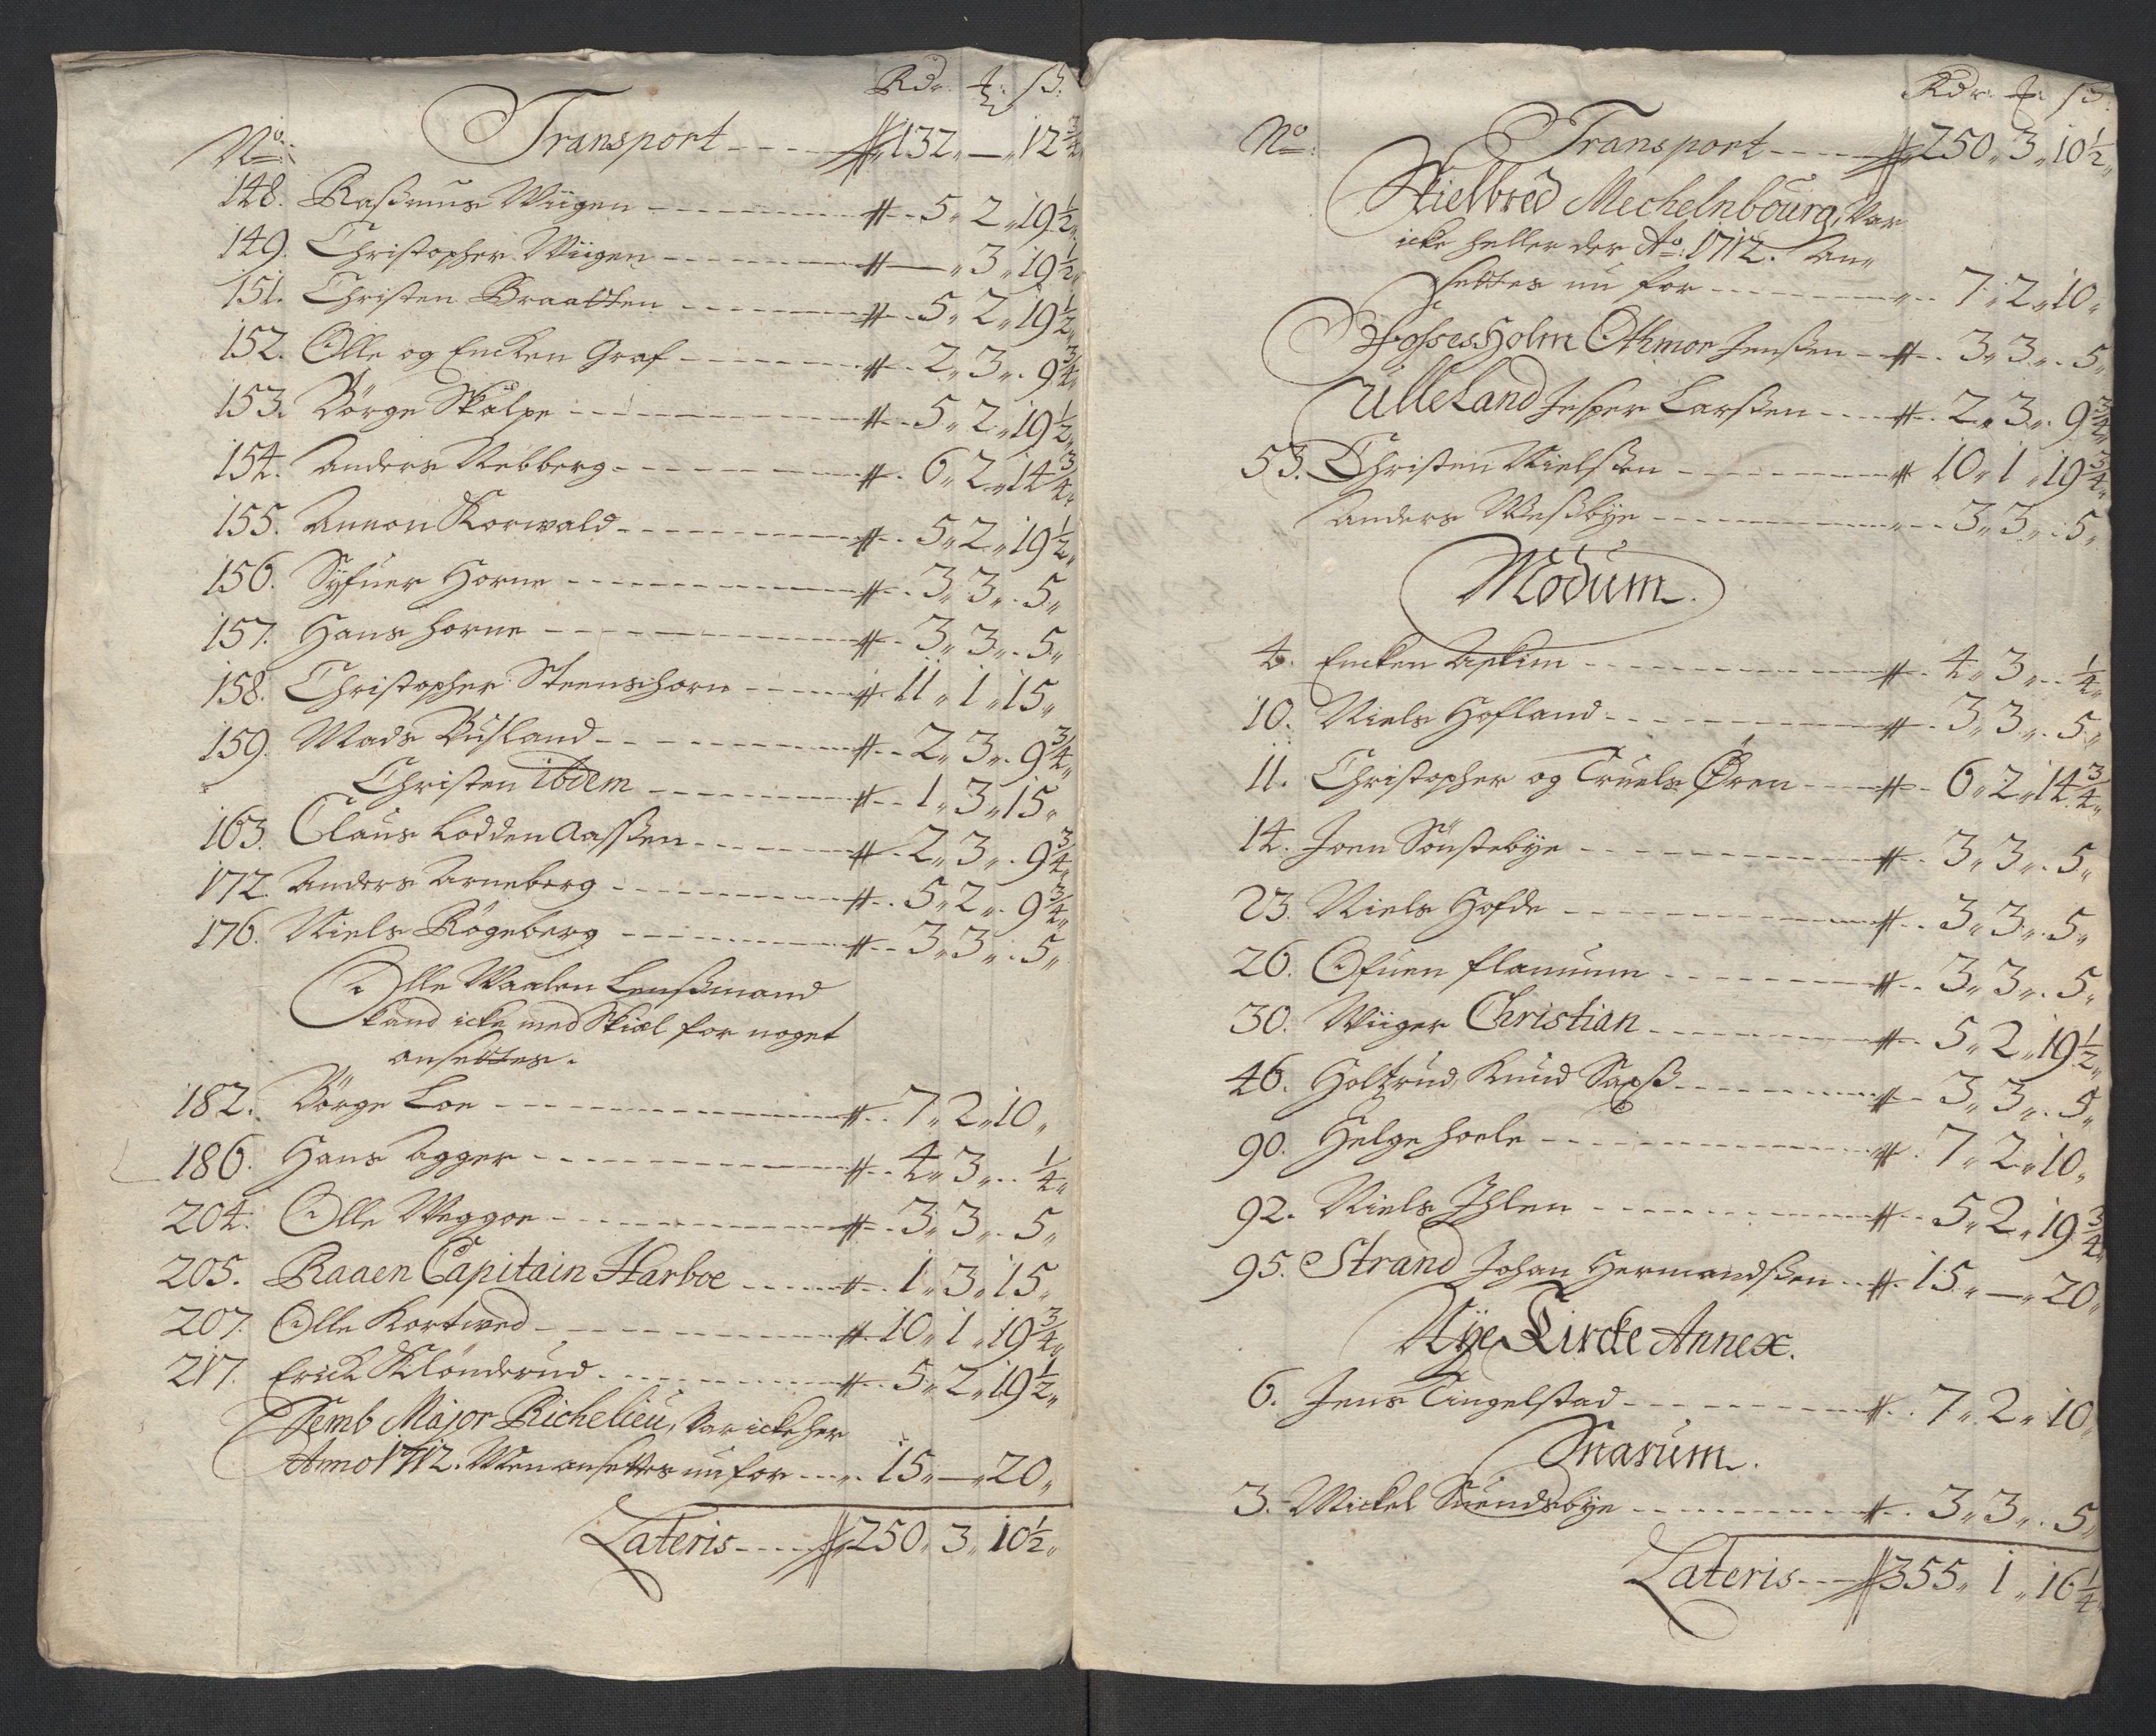 Rdr. ℔: ß:
No: Transport ---- 132,, — ,, 12 3/4
148. Raßmus Wiigen ---- 5,, 2,, 19 1/2,,
149. Christopher Wiigen ---- — ,, 3,, 19 1/2,,
151. Christen Braatten ---- 5,, 2,, 19 1/2,,
152. Olle og Encken Graf ---- 2,, 3,, 9 3/4,,
153. Börge Skalpe ---- 5,, 2,, 19 1/2,,
154. Anders Nebberg ---- 6,, 2,, 14 3/4,,
155. Ammon Korwald ---- 5,, 2,, 19 1/2,,
156. Syfuer Horne ---- 3,, 3,, 5,,
157. Hans Horne ---- 3,, 3,, 5,,
158. Christopher Steenshorn ---- 11,, 1,, 15,,
159. Mads Rusland ---- 2,, 3,, 9 3/4,,
Christen ibdem ---- 1,, 3,, 15,,
163. Claus Lodden Aaßen ---- 2,, 3,, 9 3/4,,
172. Anders Arneberg ---- 5,, 2,, 9 3/4,,
176. Niels Rögeberg ---- 3,, 3,, 5,,
Olle Waalen Lenßmand
kand icke med Skiæl for noget
ansettes.
182. Börge Loe ---- 7,, 2,, 10,,
186. Hans Agger ---- 4,, 3,, 1/4,,
204. Olle Weggoe ---- 3,, 3,, 5,,
205. Raaen Capitain Harboe ---- 1,, 3,, 15,,
207. Olle Kortwed ---- 10,, 1,, 19 3/4,,
217. Erick Klönderud ---- 5,, 2,, 19 1/2,,
Semb Major Richelieu, Var icke her
Anno 1712. Men ansettes nu for ---- 15,, — ,, 20,,
Lateris ---- 250,, 3,, 10 1/2,,
Rdr: ℔: ß:
No: Transport ---- 250,, 3,, 10 1/2,,
Stielbred Mechelnbourg, Var
icke heller der Ao: 1712. An,,
settes nu for ---- 7,, 2,, 10,,
Foßesholm Othmor Jenßen ---- 3,, 3,, 5,,
Ulleland Jesper Larßen ---- 2,, 3,, 9 3/4,,
53. Christen Nielßen ---- 10,, 1,, 19 3/4,,
Anders Weßbye ---- 3,, 3,, 5,,
Modum.
4. Encken Askim ---- 4,, 3,, 1/4,,
10. Niels Hofland ---- 3,, 3,, 5,,
11. Christopher og Truels Øren ---- 6,, 2,, 14 3/4,,
14. Joen Sönstebye ---- 3,, 3,, 5,,
23. Niels Hofde ---- 3,, 3,, 5,,
26. Ofuen flannum ---- 3,, 3,, 5,,
30. Wiiger Christian ---- 5,, 2,, 19 1/2,,
46. Holtzrud, Knud Saxß ---- 3,, 3,, 5,,
90. Helge hoele ---- 7,, 2,, 10,,
92. Niels Ihlen ---- 5,, 2,, 19 3/4,,
95. Strand Johan Hermandßen ---- 15,, — ,, 20,,
Nye Kircke Annex.
6. Jens Tingelstad ---- 7,, 2,, 10,,
Snarum.
3. Mickel Suendsbye ---- 3,, 3,, 5,,
Lateris ---- 355,, 1,, 16 1/4,,